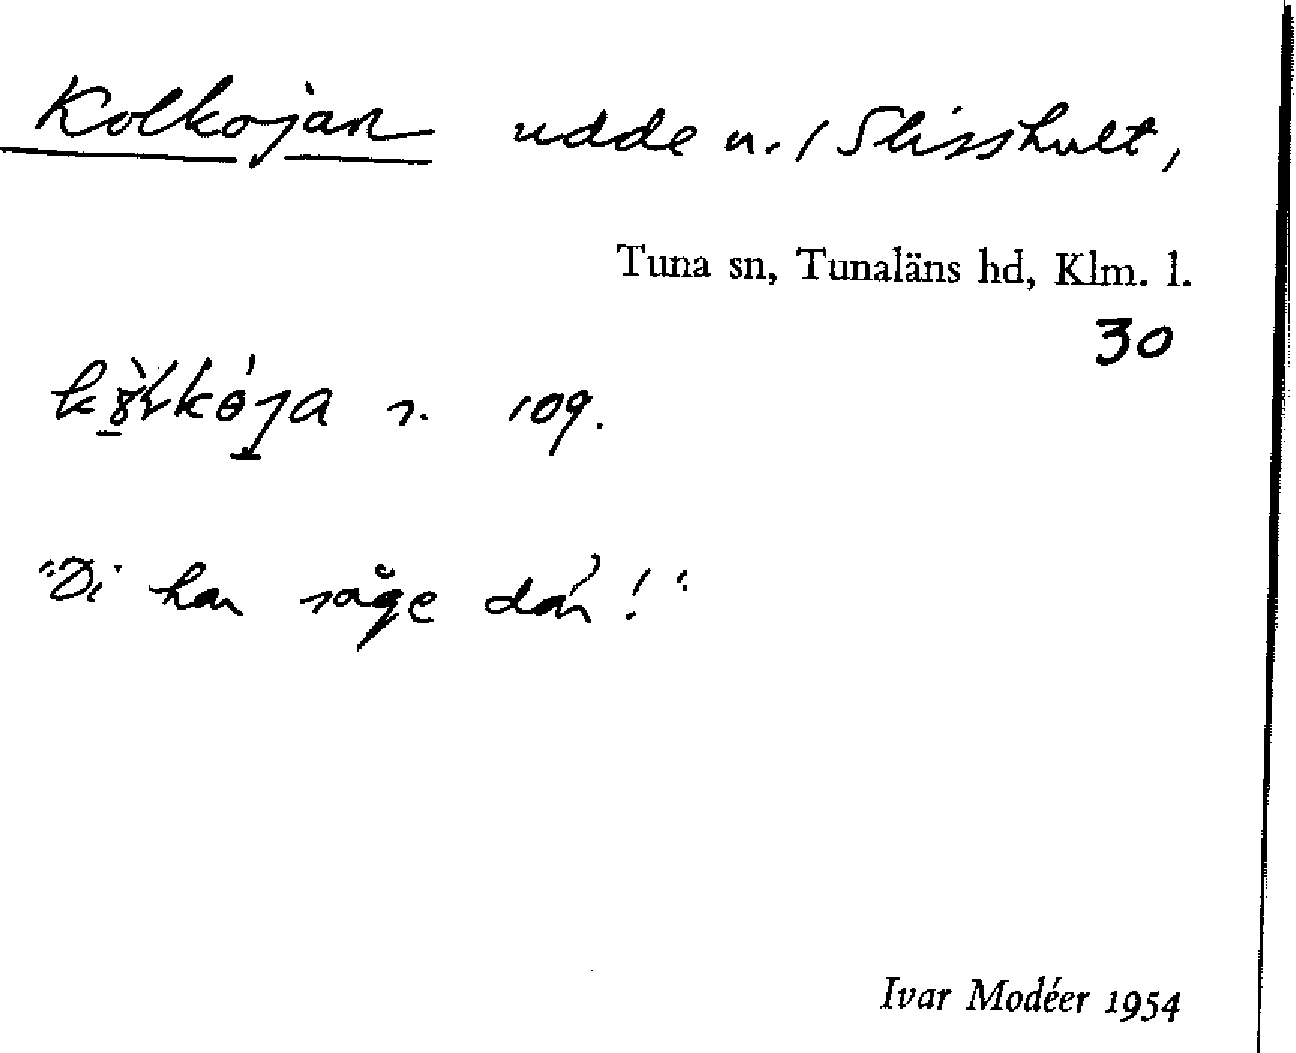 Kolkojan udde n. / Slisshult,
Tuna sn, Tunaläns hd, Klm. l.
30
109.
"Di har såge dän!"
Ivar Modéer 1954